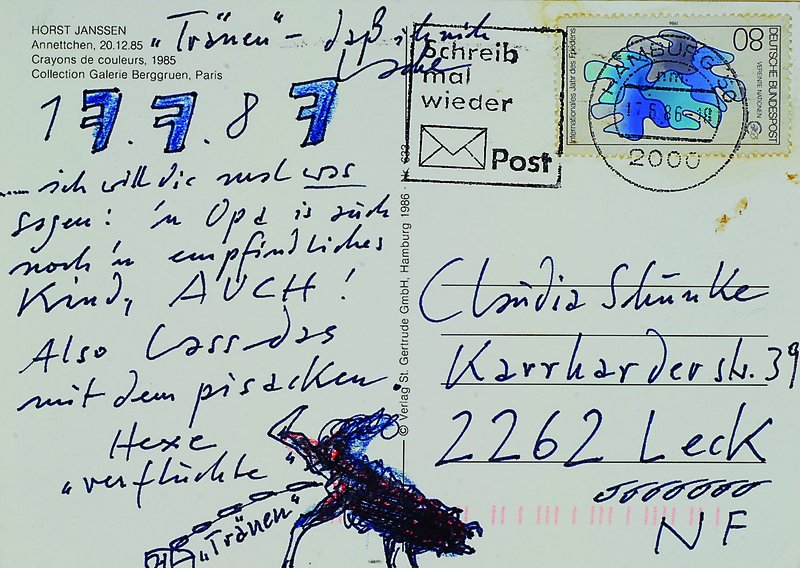 HORST JANSSEN
Annettchen, 20.12.85
Crayons de couleurs, 1985
Collection Galerie Berggruen, Paris
„Tränen" - daß ich nich
17.7.87
..... ich will dir mal was
sagen: 'n Opa is auch
noch 'n empfindliches
Kind, AUCH!
Also lass das
mit dem pisacken
Hexe
„verfluchte"
„Tränen"
© Verlag St. Gertrude GmbH, Hamburg 1986 · Nr. 633
Schreib
mal
wieder
Post
HAMBURG
2000
Internationales Jahr des Friedens
1986
VEREINTE NATIONEN
DEUTSCHE BUNDESPOST
80
Claudia Schunke
Karrharderstr. 39
2262 Leck
NF